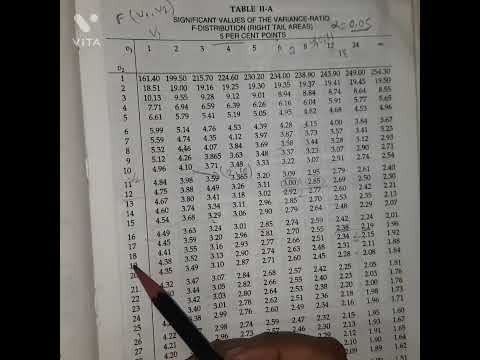 VITA
F(v₁, v₂)
V₁
α = 0.05
TABLE II-A
SIGNIFICANT VALUES OF THE VARIANCE-RATIO
F-DISTRIBUTION (RIGHT TAIL AREAS)
5 PER CENT POINTS
υ₁ 1 2 3 4 5 6 8 12 24 ∞
υ₂
1 161.40 199.50 215.70 224.60 230.20 234.00 238.90 243.90 249.00 254.30
2 18.51 19.00 19.16 19.25 19.30 19.35 19.37 19.41 19.45 19.50
3 10.13 9.55 9.28 9.12 9.01 8.94 8.84 8.74 8.64 8.55
4 7.71 6.94 6.59 6.39 6.26 6.16 6.04 5.91 5.77 5.65
5 6.61 5.79 5.41 5.19 5.05 4.95 4.82 4.68 4.53 4.96
6 5.99 5.14 4.76 4.53 4.39 4.28 4.15 4.00 3.84 3.67
7 5.59 4.74 4.35 4.12 3.97 3.87 3.73 3.57 3.41 3.23
8 5.32 4.46 4.07 3.84 3.69 3.58 3.44 3.28 3.12 2.93
9 5.12 4.26 3.865 3.63 3.48 3.37 3.23 3.07 2.90 2.71
10 4.96 4.10 3.71 3.48 3.33 3.22 3.07 2.91 2.74 2.54
11 4.84 3.98 3.59 3.365 3.20 3.09 2.95 2.79 2.61 2.40
12 4.75 3.88 3.49 3.26 3.11 3.00 2.85 2.69 2.50 2.30
13 4.67 3.80 3.41 3.18 3.02 2.92 2.77 2.60 2.42 2.21
14 4.60 3.74 3.34 3.11 2.96 2.85 2.70 2.53 2.35 2.13
15 4.54 3.68 3.29 3.06 2.90 2.79 2.64 2.48 2.29 2.07
16 4.49 3.63 3.24 3.01 2.85 2.74 2.59 2.42 2.24
17 4.45 3.59 3.20 2.96 2.81 2.70 2.55 2.38 2.19
18 4.41 3.55 3.16 2.93 2.77 2.66 2.51 2.34 2.15 1.92
19 4.38 3.52 3.13 2.90 2.74 2.63 2.48 2.31 2.11 1.88
20 4.35 3.49 3.10 2.87 2.71 2.60 2.45 2.28 2.08 1.84
21 4.32 3.47 3.07 2.84 2.68 2.57 2.42 2.25 2.05 1.81
22 3.44 3.05 2.82 2.66 2.55 2.40 2.23 2.03 1.78
3.42 3.03 2.80 2.64 2.53 2.38 2.20 2.00 1.76
3.40 3.01 2.78 2.62 2.51 2.36 2.18 1.98 1.73
2.99 2.76 2.60 2.49 2.34 2.16 1.96 1.71
4.22 2.98 2.74 2.59 2.47 2.32 2.15 1.95 1.69
4.20